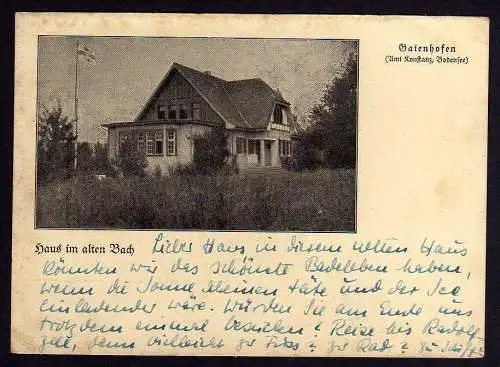 Gaienhofen
(Amt Konstanz, Bodensee)
Haus im alten Bach
Lieber Hans in diesem netten Haus
könnten wir das schönste Badeleben haben,
wenn die Sonne scheinen täte und der See
einladender wäre. Würden Sie am Ende uns
trotzdem einmal besuchen? Reise bis Radolf
zell, dann vielleicht zu Fuss? zu Rad? zu Schiff?